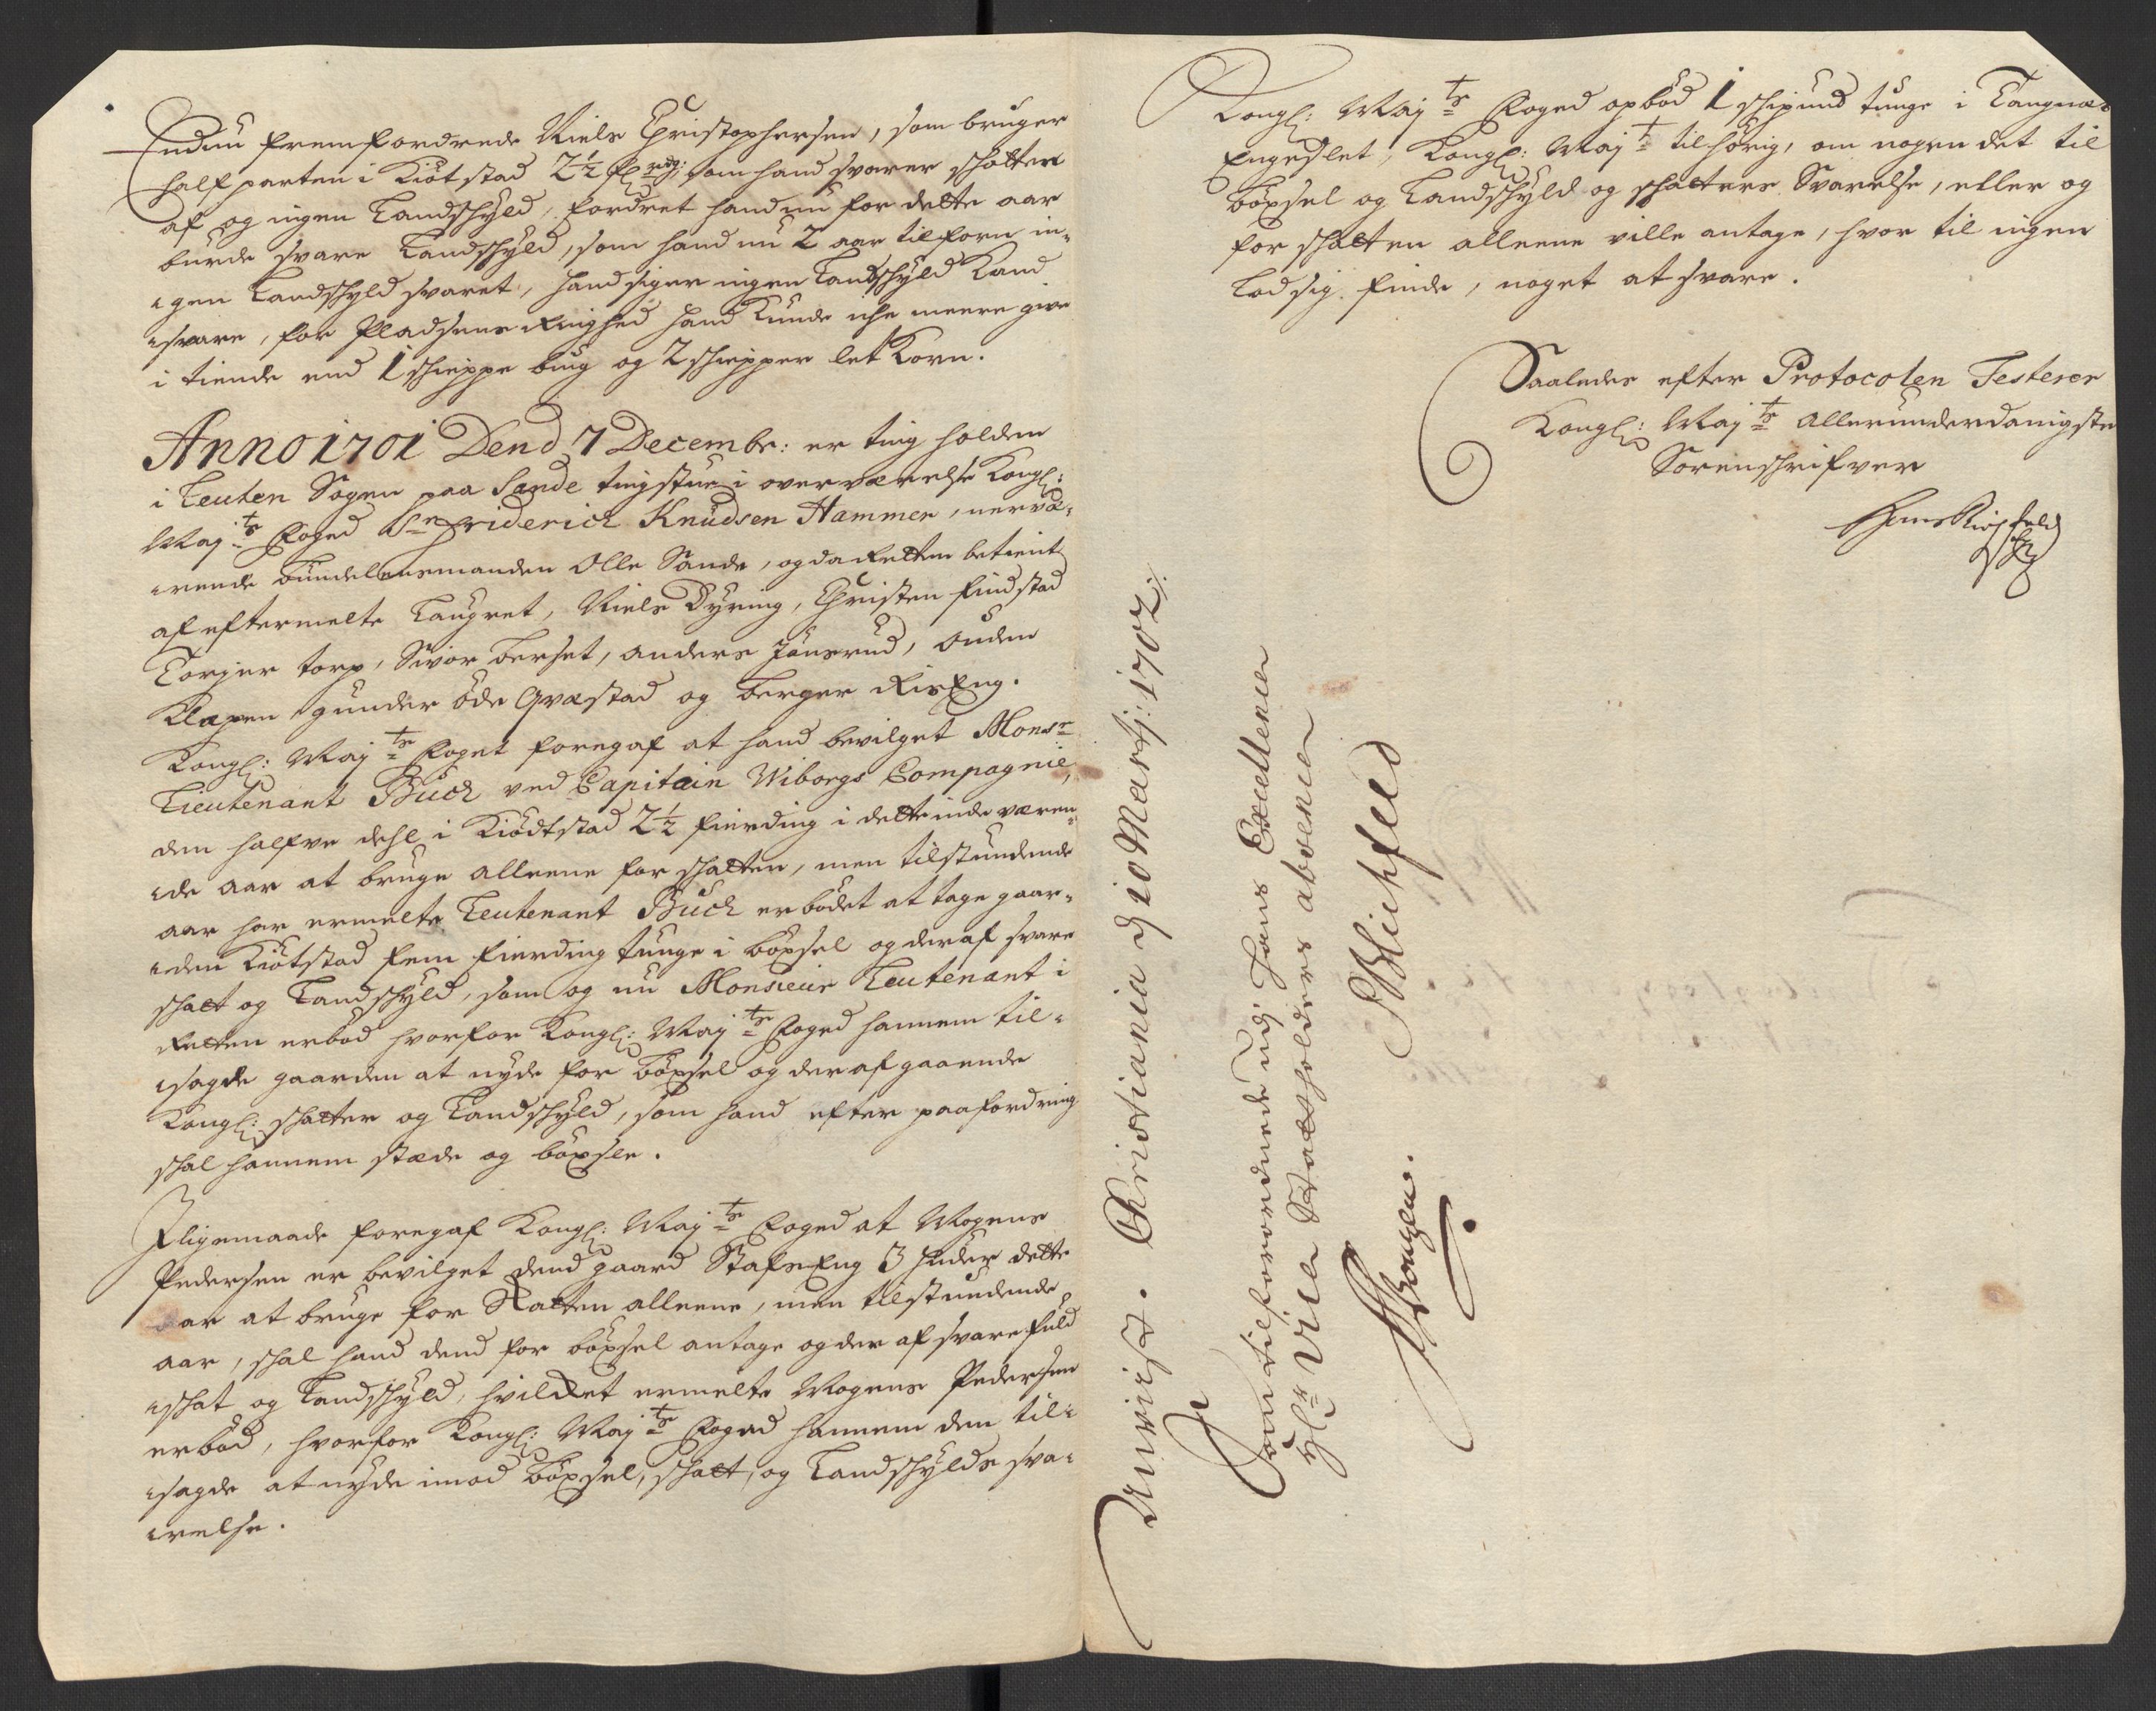 Endnu fremfordrede Niels Christophersen, som bruger
halfparten i Kiøtstad 2½ fierdg: som hand svarer schatter
af og ingen Landschyld, fordret hand nu for dette aar
burde svare Landschyld, som hand nu 2 aar tilforn in-
gen Landschyld svaret, hand siger ingen Landschyld kand
svare, for Pladsens Ringhed hand kunde iche meere give
i tiende end 1 schieppe bug og 2 schiepper let korn.
Anno 1701 Dend 7 Decembr: er ting holden
i Leuten Sogen paa Sande tingstue i overværelse Kongl:
Maj:ts Foged Sr Friderich Knudsen Hammer, nervæ-
rende bundelensmanden Olle Sande, og da Retten betient
af eftermelte Laugret, Niels Dyring, Christen Findstad
Torger torp, Sivor berset, anders Jønsrud, Auden
Klæpen gunder øde Qvæstad og berger RisEng.
Kongl: Maj:ts Foget foregaf at hand bevilget Monsr
Lieutenant Buch ved Capitain Wiborgs Compagnie,
den halfve dehl i Kiødtstad 2½ fierding i dette inde væren-
de aar at bruge alleene for schatten, men tilstundende
aar har ermelte Leutenant Buch erbødet at tage gaar-
den Kiøtstad fem fierding tunge i böxsel og deraf svare
schatt og Landschyld, som og nu Monsieur Leutenant i
Retten erbød hvorfor Kongl: Maj:ts Foged hannem til-
sagde gaarden at nyde for böxsel og der af gaaende
Kongl: schatter og Landschyld, som hand efter paafordring
schal hannem stæde og böxsle.
Jligemaade foregaf Kongl: Maj:ts Foged at Mogens
Pedersen er bevilget dend gaard StafsEng 3 huder dette
aar at bruge for Skatten alleene, men tilstundende
aar, schal hand dend for böxsel antage og der af svare fuld
schat og Landschyld, hvilcket ermelte Mogens Pedersen
erbød, hvorfor Kongl: Maj:ts Foged hannem den til-
sagde at nyde imod böxsel, schatt, og Landschylds sva-
relse.
Kongl: Maj:ts Foged opbød 1 schipund tunge i
Kongl: Maj:t tilhørig, om nogen det til
böxsel og Landschyld og schatters Svarelse, eller og
for schatten alleene ville antage, hvor til ingen
lod sig finde, noget at svare.
Saaledes efter Protocolen Testerer
Kongl: Maj:ts allerunderdanigste
Sorenschrifver
Revist. Christiania d 10 Martj: 1702
Som tilforordnede udj Hans Excellence
H:r Vice Statholders absence